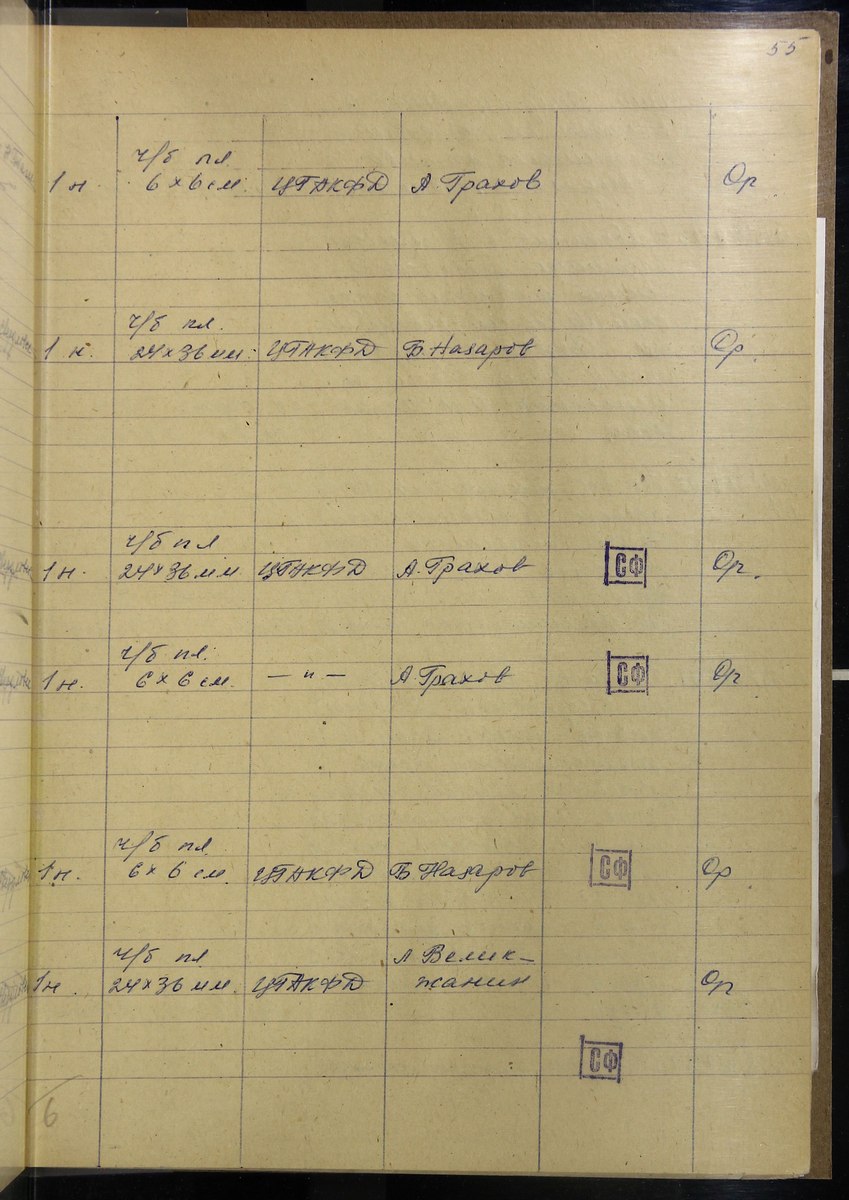 55
ч/б пл.
1 н. 6×6 см. ЦГАКФД А. Грахов Ор
ч/б пл.
1 н. 24×36 мм. ЦГАКФД Б. Назаров Ор
ч/б пл
1 н. 24×36 мм ЦГАКФД А. Грахов СФ Ор.
ч/б пл.
1 н. 6×6 см. — " — А. Грахов СФ Ор
ч/б пл
1 н. 6×6 см. ЦГАКФД Б Назаров СФ Ор
ч/б пл Л Велик-
1 н. 24×36 мм. ЦГАКФД жанин Ор
СФ
6